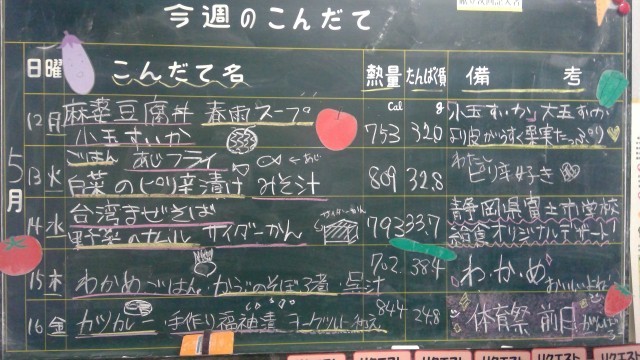 今週のこんだて
日 曜 こんだて名 熱量 たんぱく質 備考
5月
12 月 麻婆豆腐丼 春雨スープ
小玉すいか
Cal 753 g 32.0
小玉すいか、大玉すいか
より皮がうすく果実たっぷり
13 火 ごはん あじフライ ←あじ
白菜のピリ辛漬け みそ汁
809 32.8
わたし
ピリ辛好き
14 水 台湾まぜそば
野菜のナムル サイダーかん
サイダーかん
793 33.7
静岡県富士市学校
給食オリジナルデザート!
15 木 わかめごはん かぶのそぼろ煮 呉汁
702 38.4
わ・か・め
おいしいよね
16 金 カツカレー 手作り福神漬 ヨーグルト和え
844 24.8
体育祭 前日
リクエスト リクエスト リクエスト リクエスト